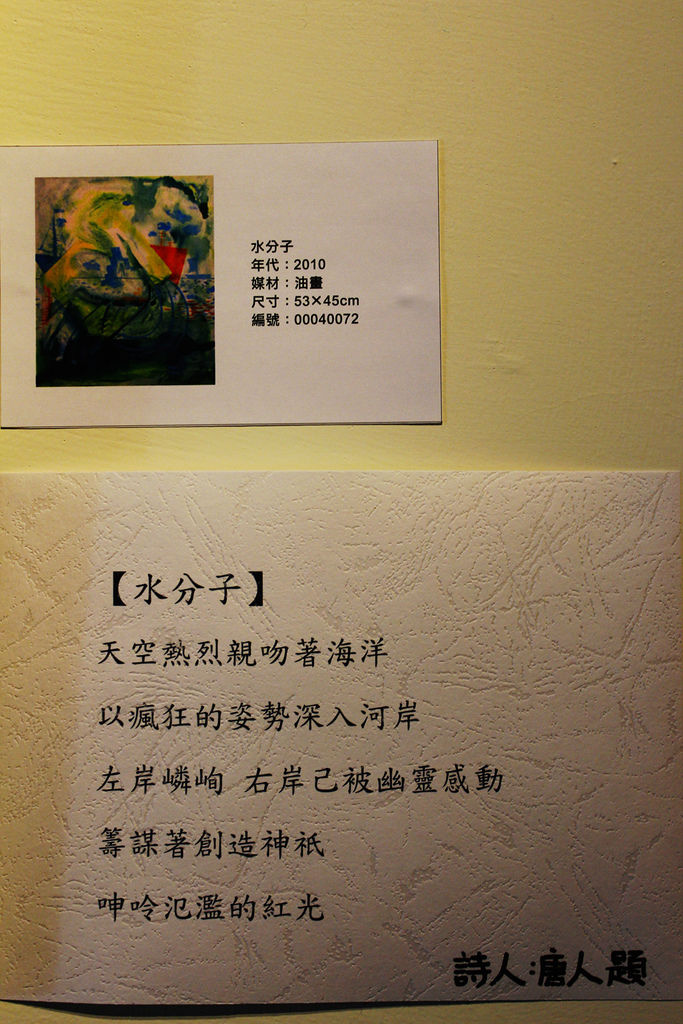 水分子
年代：2010
媒材：油畫
尺寸：53×45cm
編號：00040072
【水分子】
天空熱烈親吻著海洋
以瘋狂的姿勢深入河岸
左岸嶙峋 右岸已被幽靈感動
籌謀著創造神祇
呻吟氾濫的紅光
詩人:唐人題